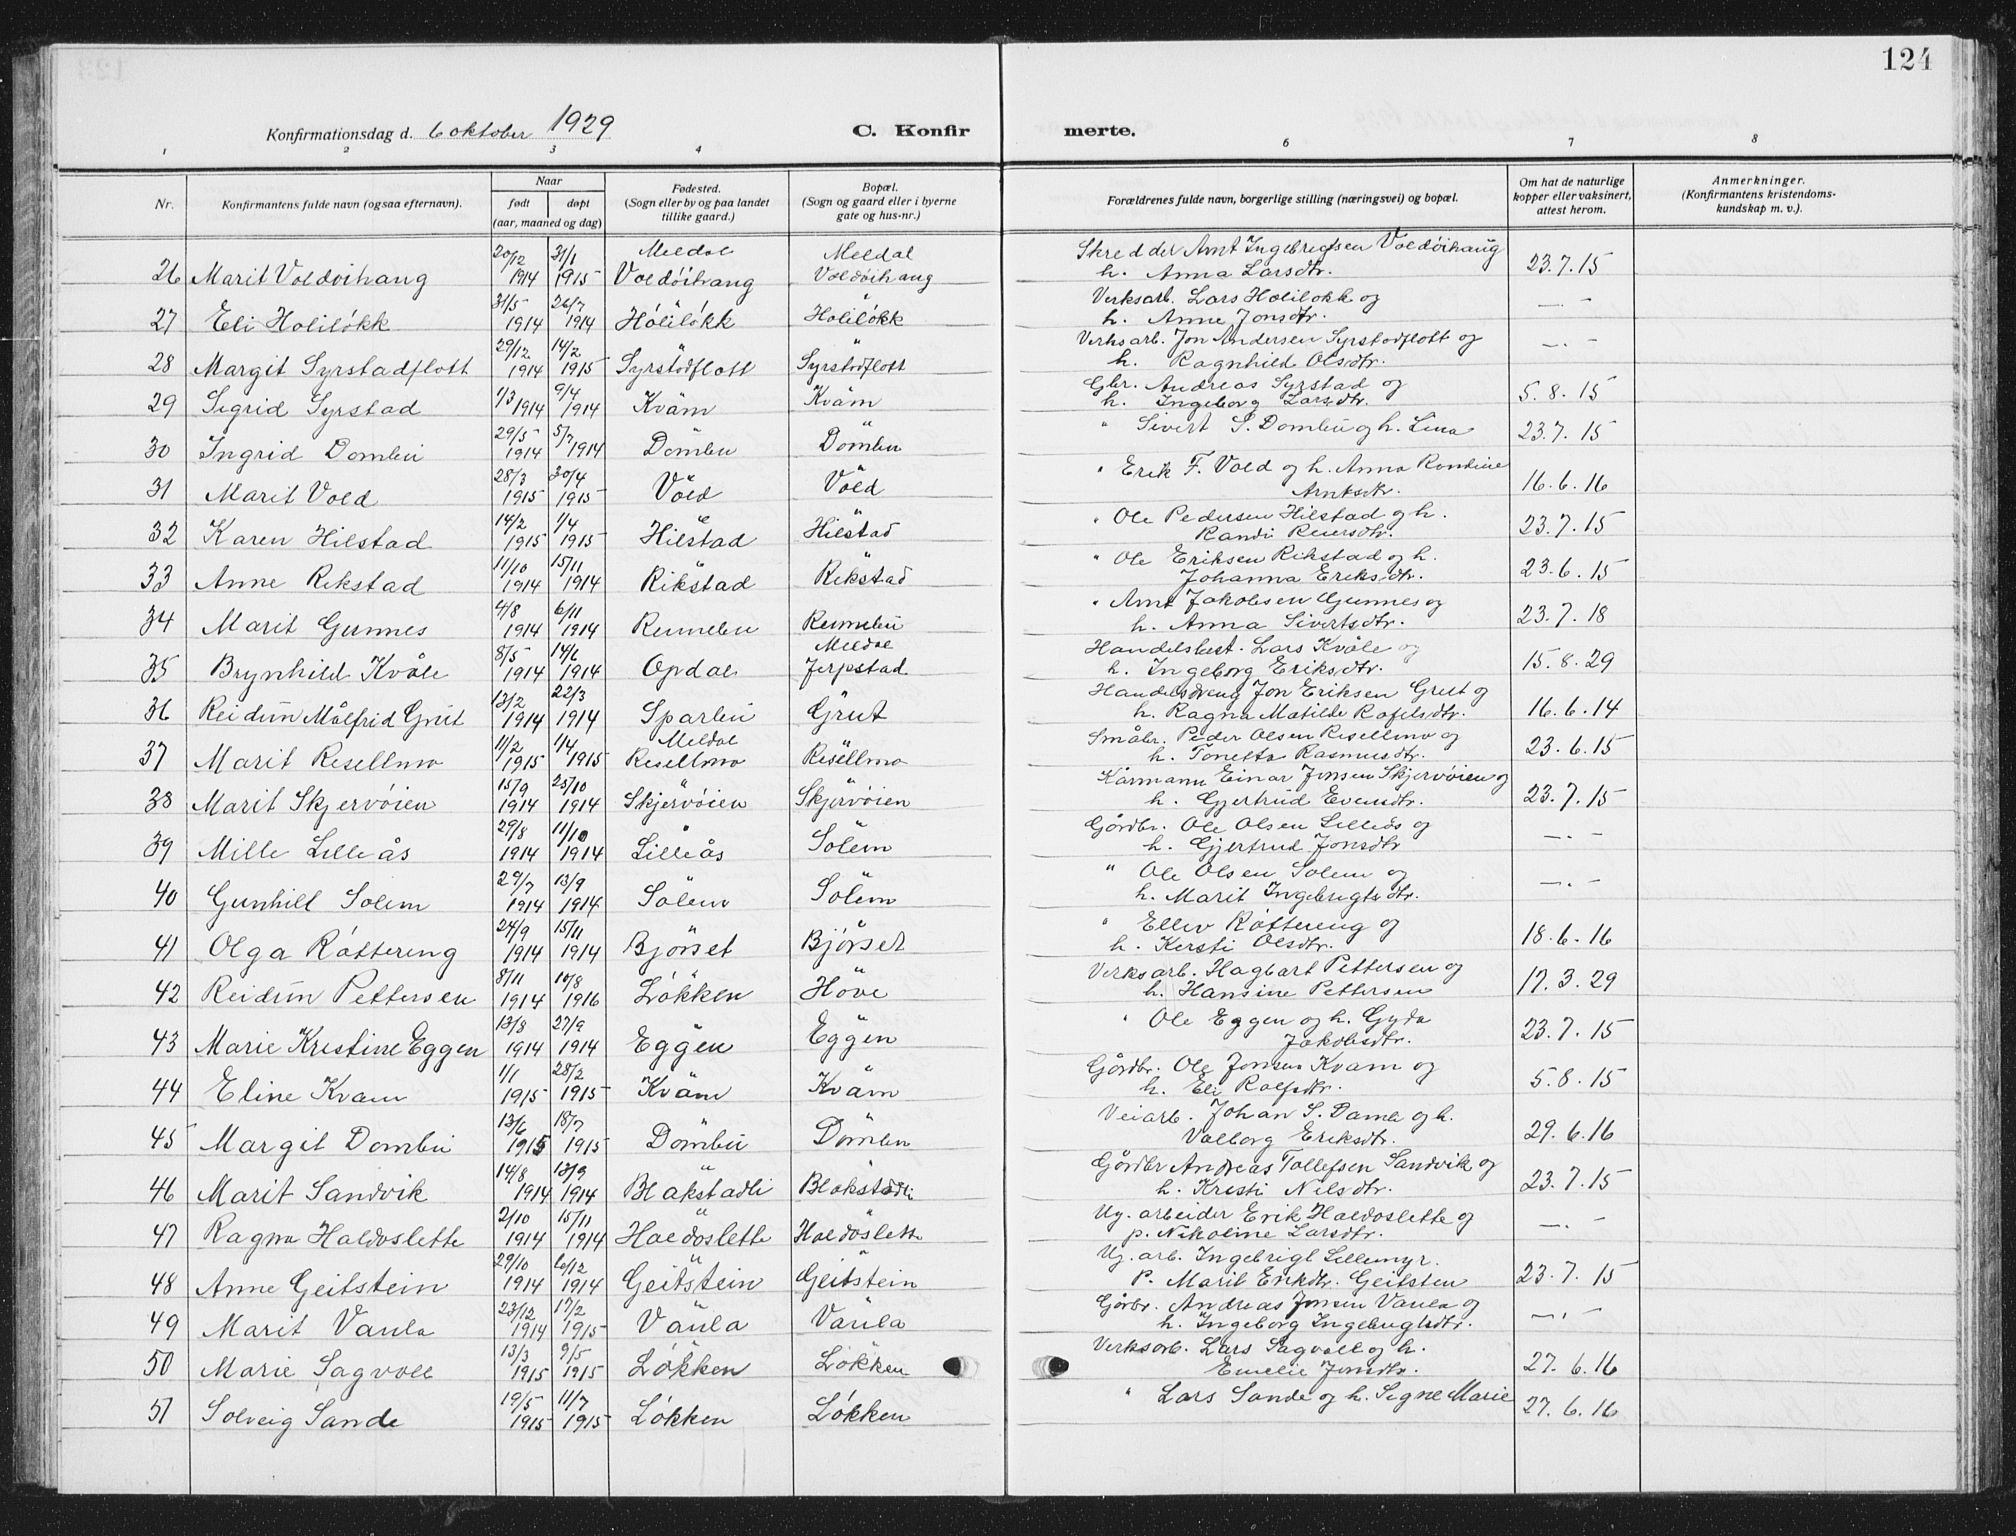 124
Konfirmationsdag d. 6 oktober 1929 C. Konfir merte.
1 2 3 4 6 7 8
Nr. Konfirmantens fulde navn (ogsaa efternavn). Naar født døpt (aar, maaned og dag) Fødested. (Sogn eller by og paa landet tillike gaard.) Bopæl. (Sogn og gaard eller i byerne gate og hus-nr.) Forældrenes fulde navn, borgerlige stilling (næringsvei) og bopæl. Om hat de naturlige kopper eller vaksinert, attest herom. Anmerkninger. (Konfirmantens kristendomskundskap m. v.).
20/12 31/1 Meldal Meldal Skredder Arnt Ingebrigtsen Voldöihaug
26 Marit Voldöihaug 1914 1915 Voldöihaug Voldöihaug h. Anna Larsdtr. 23.7.15
31/5 26/7 " " Verksarb. Lars Holilökk og
27 Eli Holilökk 1914 1914 Holilökk Holilökk h. Anne Jonsdtr. —.–
29/12 14/2 " " Verksarb. Jon Andersen Syrstadflott og
28 Margit Syrstadflott 1914 1915 Syrstadflott Syrstadflott h. Ragnhild Olsdtr. —.–
1/3 9/4 " " Gbr. Andreas Syrstad og
29 Sigrid Syrstad 1914 1914 Kvam Kvam h. Ingeborg Larsdtr. 5.8.15
29/5 5/7 " " " Sivert S. Dombu og h. Lina
30 Ingrid Dombu 1914 1914 Dombu Dombu 23.7.15
28/3 30/4 " " " Erik F. Vold og h. Anna Rondine
31 Marit Vold 1915 1915 Vold Vold Arntsdtr. 16.6.16
14/2 1/4 " " " Ole Pedersen Hilstad og h.
32 Karen Hilstad 1915 1915 Hilstad Hilstad Randi Reiersdtr. 23.7.15
11/10 15/11 " " " Ole Eriksen Rikstad og h.
33 Anne Rikstad 1914 1914 Rikstad Rikstad Johanna Eriksdtr. 23.6.15
4/8 6/11 " Arnt Jakobsen Gunnes og
34 Marit Gunnes 1914 1914 Rennebu Rennebu h. Anna Sivertsdtr. 23.7.18
8/5 14/6 Meldal Handelsbest. Lars Kvåle og
35 Brynhild Kvåle 1914 1914 Opdal Jerpstad h. Ingeborg Eriksdtr. 15.8.29
13/2 22/3 " Handelsdreng Jon Eriksen Grut og
36 Reidun Målfrid Grut 1914 1914 Sparbu Grut h. Ragna Matilde Rafelsdtr. 16.6.14
11/2 1/4 Meldal " Småbr. Peder Olsen Resellmo og
37 Marit Resellmo 1915 1915 Resellmo Resellmo h. Tonetta Rasmusdtr. 23.6.15
15/9 25/10 " " Kårmann Einar Jonsen Skjervöien og
38 Marit Skjervöien 1914 1914 Skjervöien Skjervöien h. Gjertrud Evensdtr. 23.7.15
29/8 11/10 " " Gårdbr. Ole Olsen Lilleås og
39 Mille Lilleås 1914 1914 Lilleås Solem h. Gjertrud Jonsdtr —.–
29/7 13/9 " " " Ole Olsen Solem og
40 Gunhill Solem 1914 1914 Solem Solem h. Marit Ingebrigtsdtr. —.–
24/9 15/11 " " " Ellev Råttering og
41 Olga Råttering 1914 1914 Bjørset Bjørset h. Kersti Olsdtr. 18.6.16
8/11 10/8 " " Verksarb. Hagbart Pettersen og
42 Reidun Pettersen 1914 1916 Løkken Hove h. Hansine Pettersen 17.3.29
13/8 27/9 " " " Ole Eggen og h. Gyda
43 Marie Kristine Eggen 1914 1914 Eggen Eggen Jakobsdtr. 23.7.15
1/1 28/2 " " Gårdbr. Ole Jonsen Kvam og
44 Eline Kvam 1915 1915 Kvam Kvam h. Eli Rolfsdtr. 5.8.15
13/6 18/7 " " Veiarb. Johan S. Damli og h.
45 Margit Dombu 1915 1915 Dombu Dombu Valborg Eriksdtr. 29.6.16
14/8 13/9 " " Gårdbr Andreas Tollefsen Sandvik og
46 Marit Sandvik 1914 1914 Blakstadli Blokstadli h. Kristi Nilsdtr. 23.7.15
2/10 15/11 " " Ug. arbeider Erik Haldoslette og
47 Ragna Haldoslette 1914 1914 Haldoslette Haldoslette p. Nikoline Larsdtr. —.–
29/10 6/12 " " Ug. arb. Ingebrigt Lillemyr.
48 Anne Geitstein 1914 1914 Geitstein Geitstein P. Marit Eriksdtr. Geitsten 23.7.15
23/12 17/2 " " Gårbr. Andreas Jonsen Vaula og
49 Marit Vaula 1914 1915 Vaula Vaula h. Ingeborg Ingebrigtsdtr. —.–
13/3 9/5 " " Verksarb. Lars Sagvoll og h.
50 Marie Sagvoll 1915 1915 Løkken Løkken Emelie Jonsdtr. 27.6.16
19/5 11/7 " " " Lars Sande og h. Signe Marie
51 Solveig Sande 1915 1915 Løkken Løkken 27.6.16